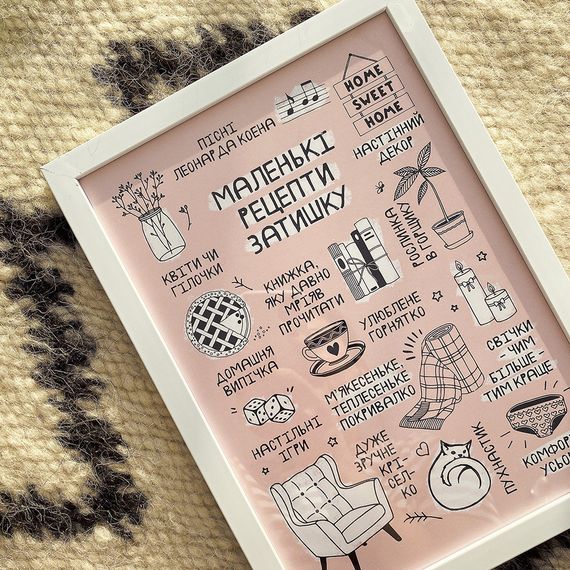 ПІСНІ
ЛЕОНАРДА КОЕНА
HOME
SWEET
HOME
НАСТІННИЙ
ДЕКОР
МАЛЕНЬКІ
РЕЦЕПТИ
ЗАТИШКУ
КВІТИ ЧИ
ГІЛОЧКИ
КНИЖКА,
ЯКУ ДАВНО
МРІЯВ
ПРОЧИТАТИ
РОСЛИНКА
В ГОРЩИКУ
ДОМАШНЯ
ВИПІЧКА
УЛЮБЛЕНЕ
ГОРНЯТКО
СВІЧКИ
ЧИМ
БІЛЬШЕ -
ТИМ КРАЩЕ
М'ЯКЕСЕНЬКЕ,
ТЕПЛЕСЕНЬКЕ
ПОКРИВАЛКО
НАСТІЛЬНІ
ІГРИ
ДУЖЕ
ЗРУЧНЕ
КРІ-
СЕЛ-
КО
ПУХНАСТИК